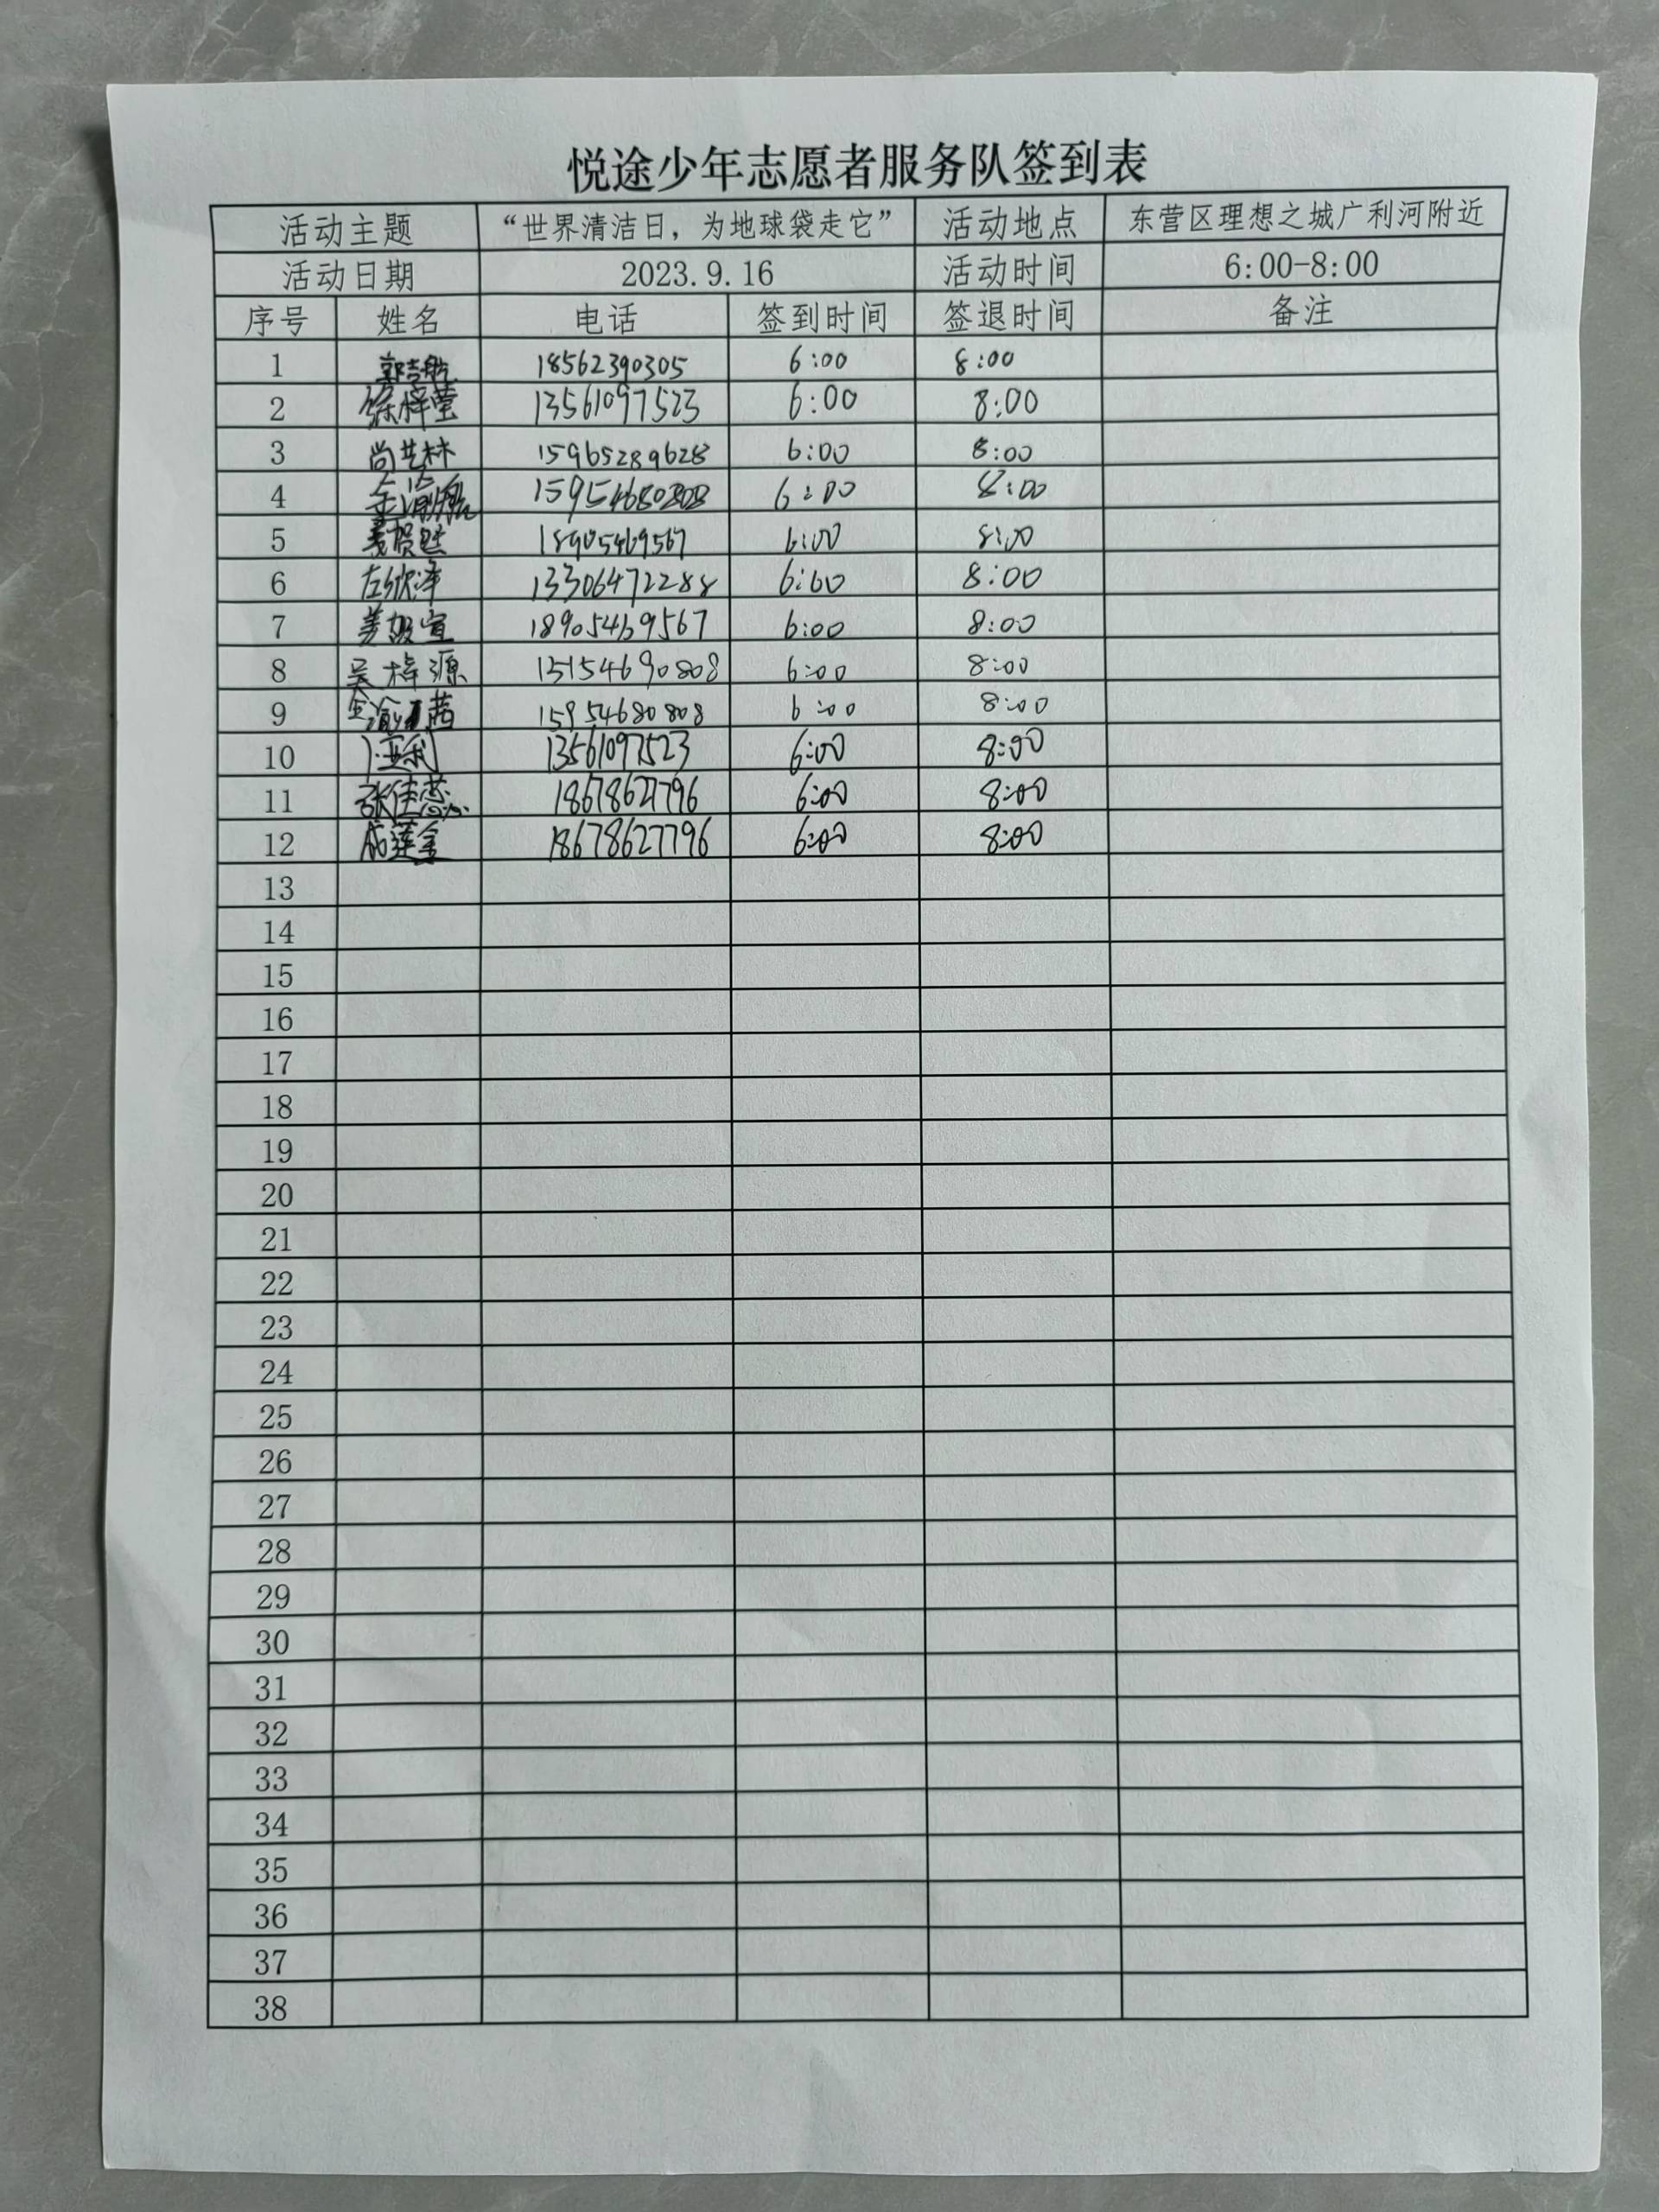 悦途少年志愿者服务队签到表
活动主题 “世界清洁日，为地球袋走它” 活动地点 东营区理想之城广利河附近
活动日期 2023.9.16 活动时间 6:00-8:00
序号 姓名 电话 签到时间 签退时间 备注
1 18562390305 6:00 8:00
2 徐梓莹 13561097523 6:00 8:00
3 尚艺林 15965289628 6:00 8:00
4 15954680808 6:00 8:00
5 18905469567 6:00 8:00
6 左欣泽 13306472288 6:00 8:00
7 18905469567 6:00 8:00
8 吴梓源 15154690808 6:00 8:00
9 15954680808 6:00 8:00
10 13561097523 6:00 8:00
11 张佳蕊 18678627796 6:00 8:00
12 成莲金 18678627796 6:00 8:00
13
14
15
16
17
18
19
20
21
22
23
24
25
26
27
28
29
30
31
32
33
34
35
36
37
38